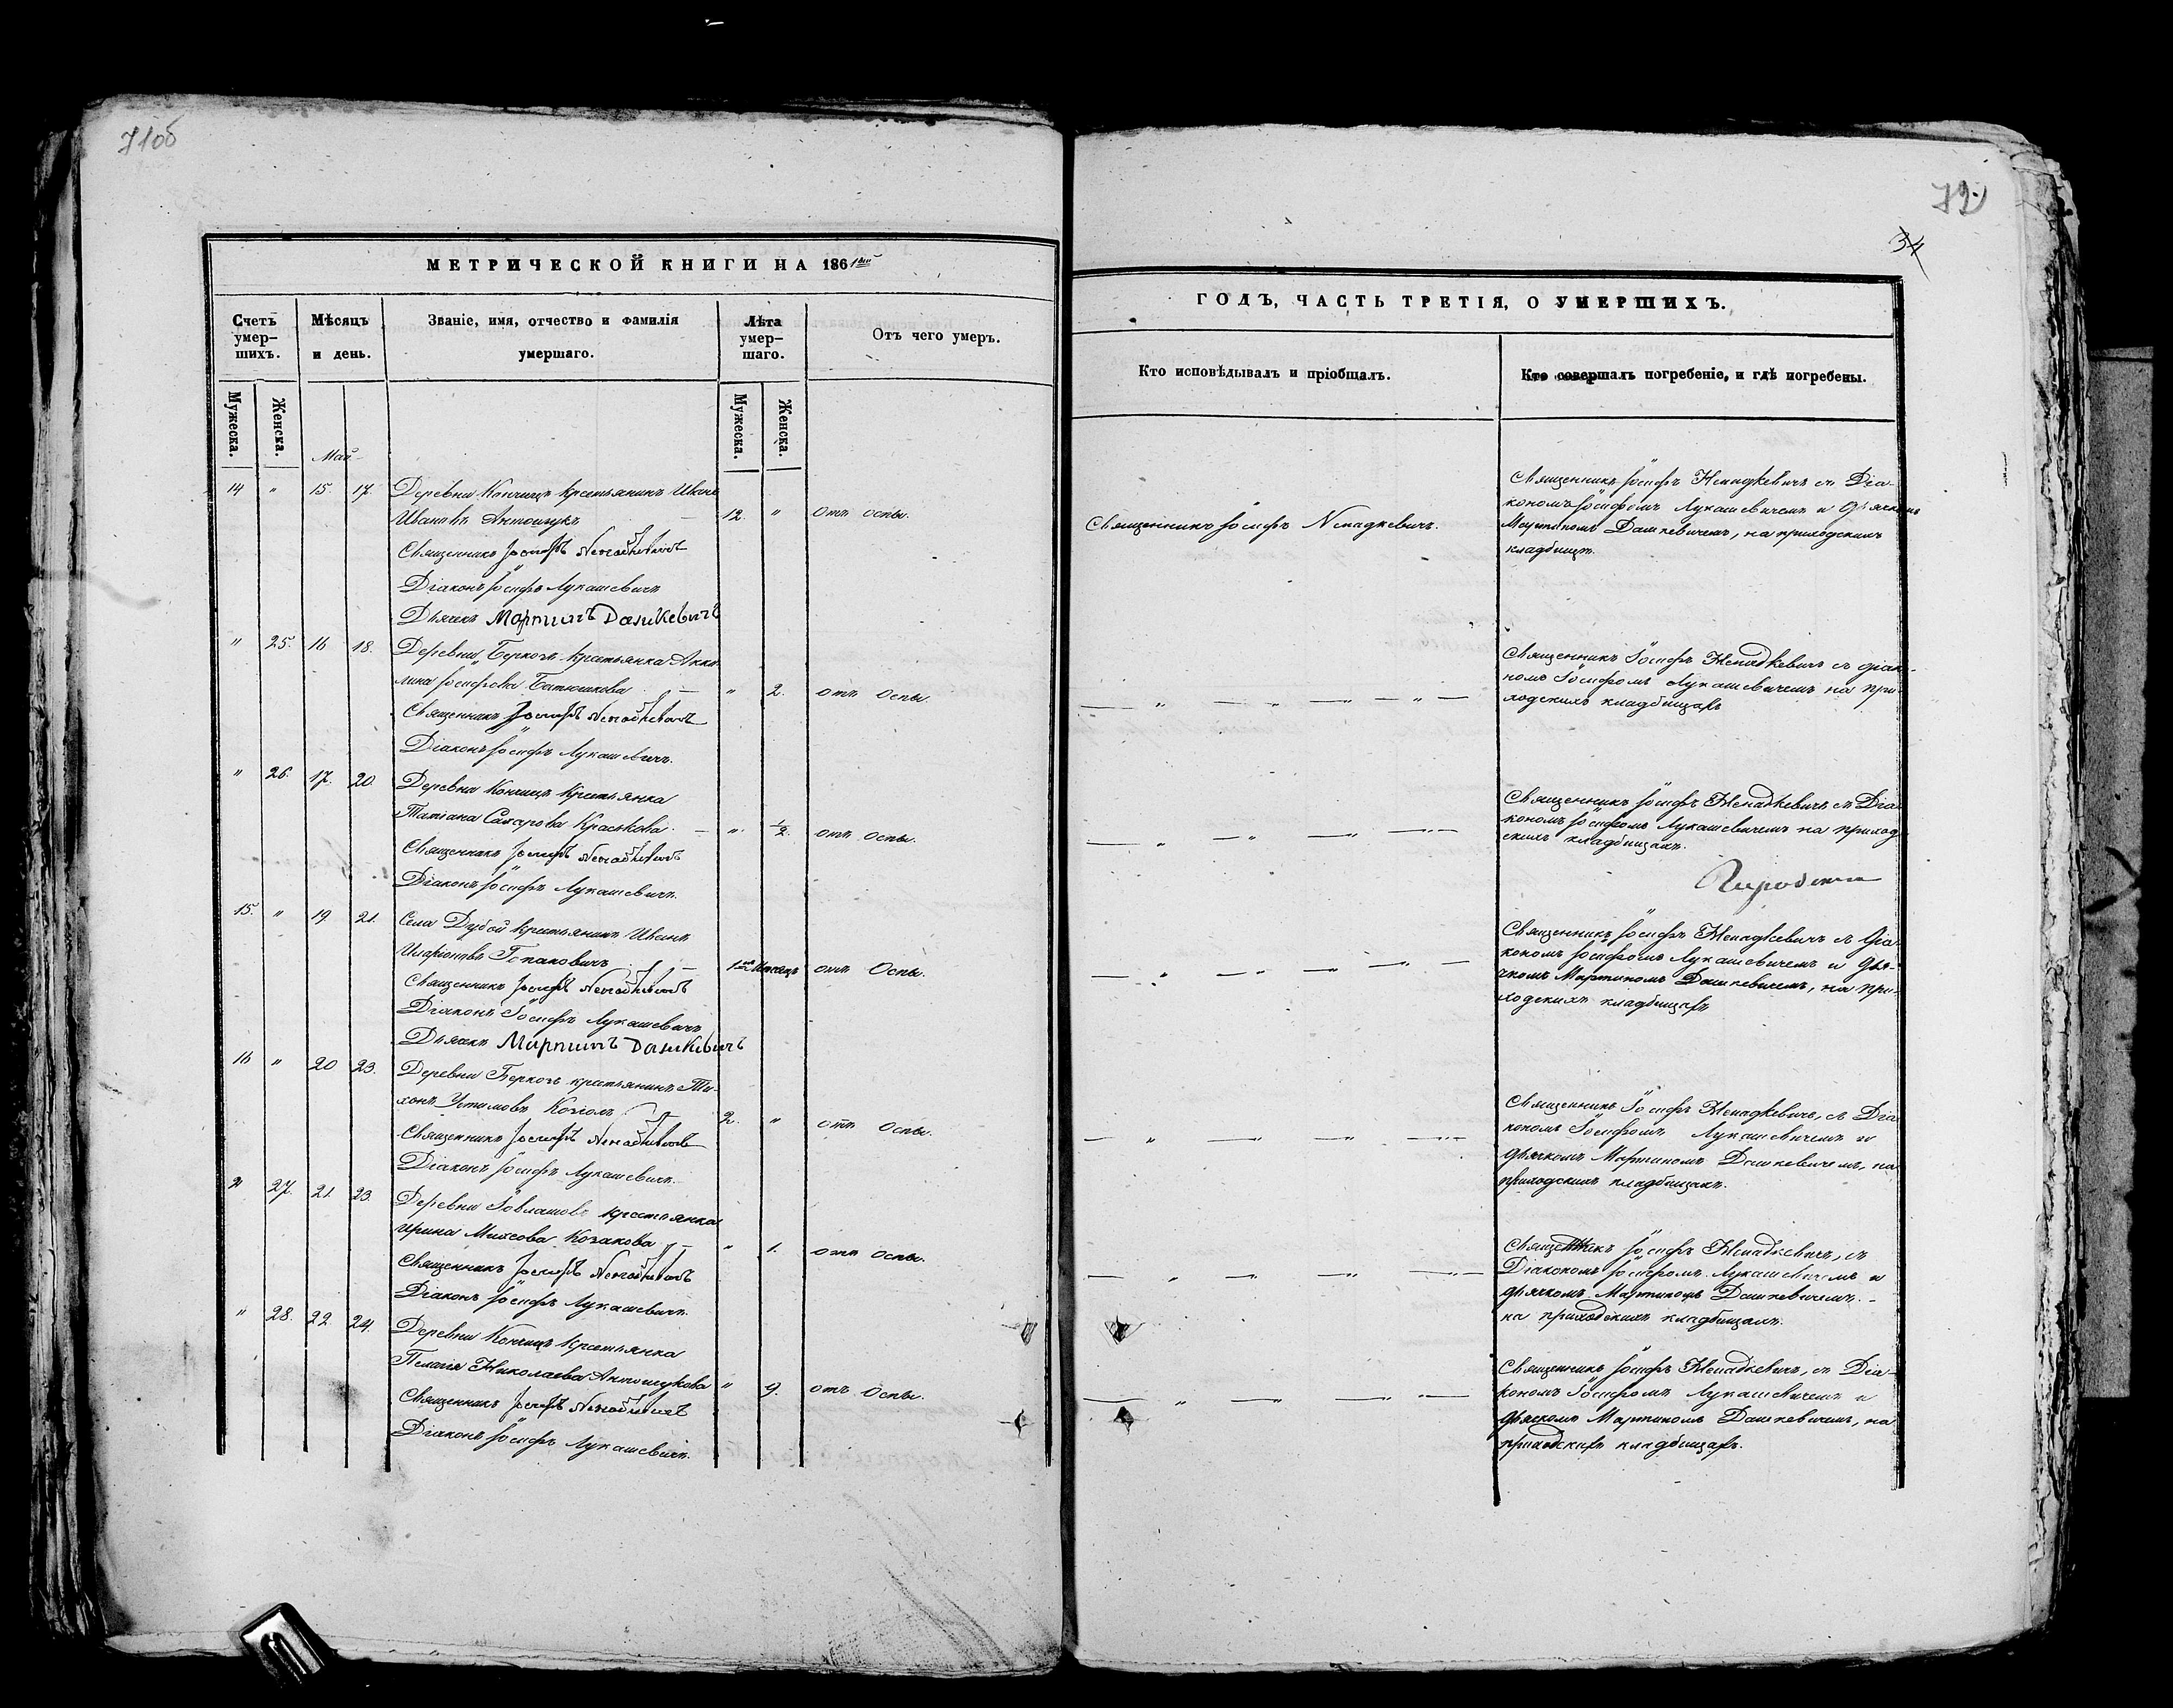 71об
МЕТРИЧЕСКОЙ КНИГИ НА 1861й
Счетъ умер-
шихъ.
Мѣсяцъ
и день.
Званіе, имя, отчество и фамилія
умершаго.
Лѣта
умер-
шаго.
Отъ чего умеръ.
Мужеска.
Женска.
Мужеска.
Женска.
Май
14 " 15. 17. Деревни Кончицъ крестьянинъ Иванъ
Ивановъ Антощукъ 12. " отъ оспы.
Священникъ Іосифъ Ненадкевичъ
Діаконъ Іосифъ Лукашевичъ
Дьячекъ Мартинъ Дашкевичъ
" 25. 16 18. Деревни Беркозъ крестьянка Аку-
лина Іосифова Батюшкова " 2. отъ Оспы.
Священникъ Іосифъ Ненадкевичъ
Діаконъ Іосифъ Лукашевичъ.
" 26. 17. 20. Деревни Кончицъ Крестьянка
Татіана Сахарова Краськова " 1/2. отъ оспы.
Священникъ Іосифъ Ненадкевичъ
Діаконъ Іосифъ Лукашевичъ.
15. " 19. 21. Села Дубой Крестьянинъ Иванъ
1 мѣсяцъ отъ Оспы.
Священникъ Іосифъ Ненадкевичъ
Діаконъ Іосифъ Лукашевичъ
Дьячекъ Мартинъ Дашкевичъ
16 " 20 23. Деревни Беркозъ крестьянинъ Ти-
хонъ Устимовъ Козіолъ 2. " отъ Оспы.
Священникъ Іосифъ Ненадкевичъ
Діаконъ Іосифъ Лукашевичъ.
" 27. 21. 23. Деревни крестьянка
Ирина Козакова " 1. отъ оспы.
Священникъ Іосифъ Ненадкевичъ
Діаконъ Іосифъ Лукашевичъ.
" 28. 22. 24. Деревни Кончицъ Крестьянка
Пелагія Николаева Антощукова " 9. отъ Оспы.
Священникъ Іосифъ Ненадкевичъ
Діаконъ Іосифъ Лукашевичъ.
72
34
ГОДЪ, ЧАСТЬ ТРЕТІЯ, О УМЕРШИХЪ.
Кто исповѣдывалъ и пріобщалъ.
Кто совершалъ погребеніе, и гдѣ погребены.
Священникъ Іосифъ Ненадкевичъ.
Священникъ Іосифъ Ненадкевичъ съ Діа-
кономъ Іосифомъ Лукашевичемъ и Дьячкомъ
Мартиномъ Дашкевичемъ, на приходскомъ
кладбищѣ.
Священникъ Іосифъ Ненадкевичъ съ діако-
номъ Іосифомъ Лукашевичемъ на при-
ходскихъ кладбищахъ
Священникъ Іосифъ Ненадкевичъ съ Діа-
кономъ Іосифомъ Лукашевичемъ на приход-
скихъ кладбищахъ.
Священникъ Іосифъ Ненадкевичъ съ Діа-
кономъ Іосифомъ Лукашевичемъ и Дья-
чкомъ Мартиномъ Дашкевичемъ, на при-
ходскихъ кладбищахъ
Священникъ Іосифъ Ненадкевичъ, съ Діа-
кономъ Іосифомъ Лукашевичемъ и
дьячкомъ Мартиномъ Дашкевичемъ, на
приходскихъ кладбищахъ.
Священникъ Іосифъ Ненадкевичъ, съ
Діакономъ Іосифомъ Лукашевичемъ и
дьячкомъ Мартиномъ Дашкевичемъ.
на приходскихъ кладбищахъ.
Священникъ Іосифъ Ненадкевичъ, съ Діа-
кономъ Іосифомъ Лукашевичемъ и
дьячкомъ Мартиномъ Дашкевичемъ, на
приходскихъ кладбищахъ.